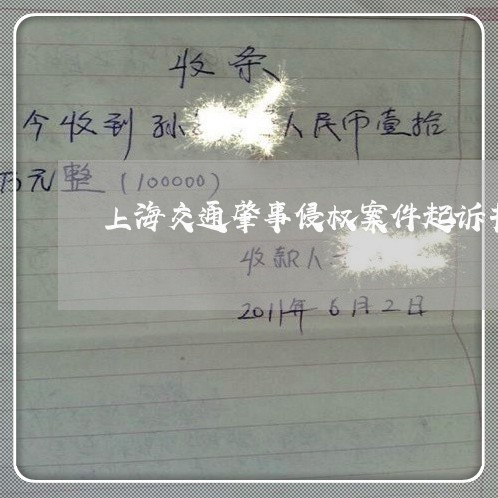 收条
今收到孙 人民币壹拾
万元整(100000)
上海交通肇事侵权案件起诉
收款人
2011年6月2日